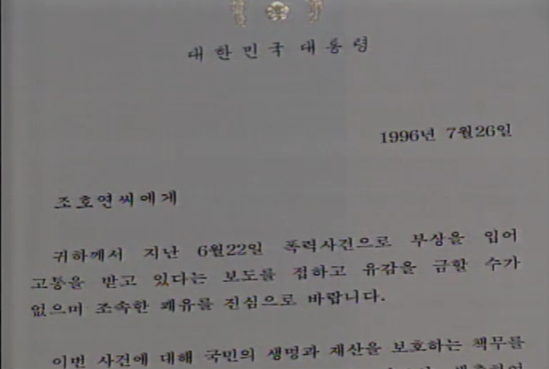 대한민국 대통령
1996년 7월26일
조호연씨에게
귀하께서 지난 6월22일 폭력사건으로 부상을 입어
고통을 받고 있다는 보도를 접하고 유감을 금할 수가
없으며 조속한 쾌유를 진심으로 바랍니다.
이번 사건에 대해 국민의 생명과 재산을 보호하는 책무를